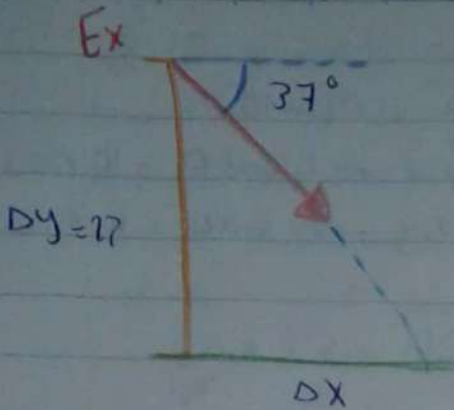 Ex
37°
Dy=??
DX